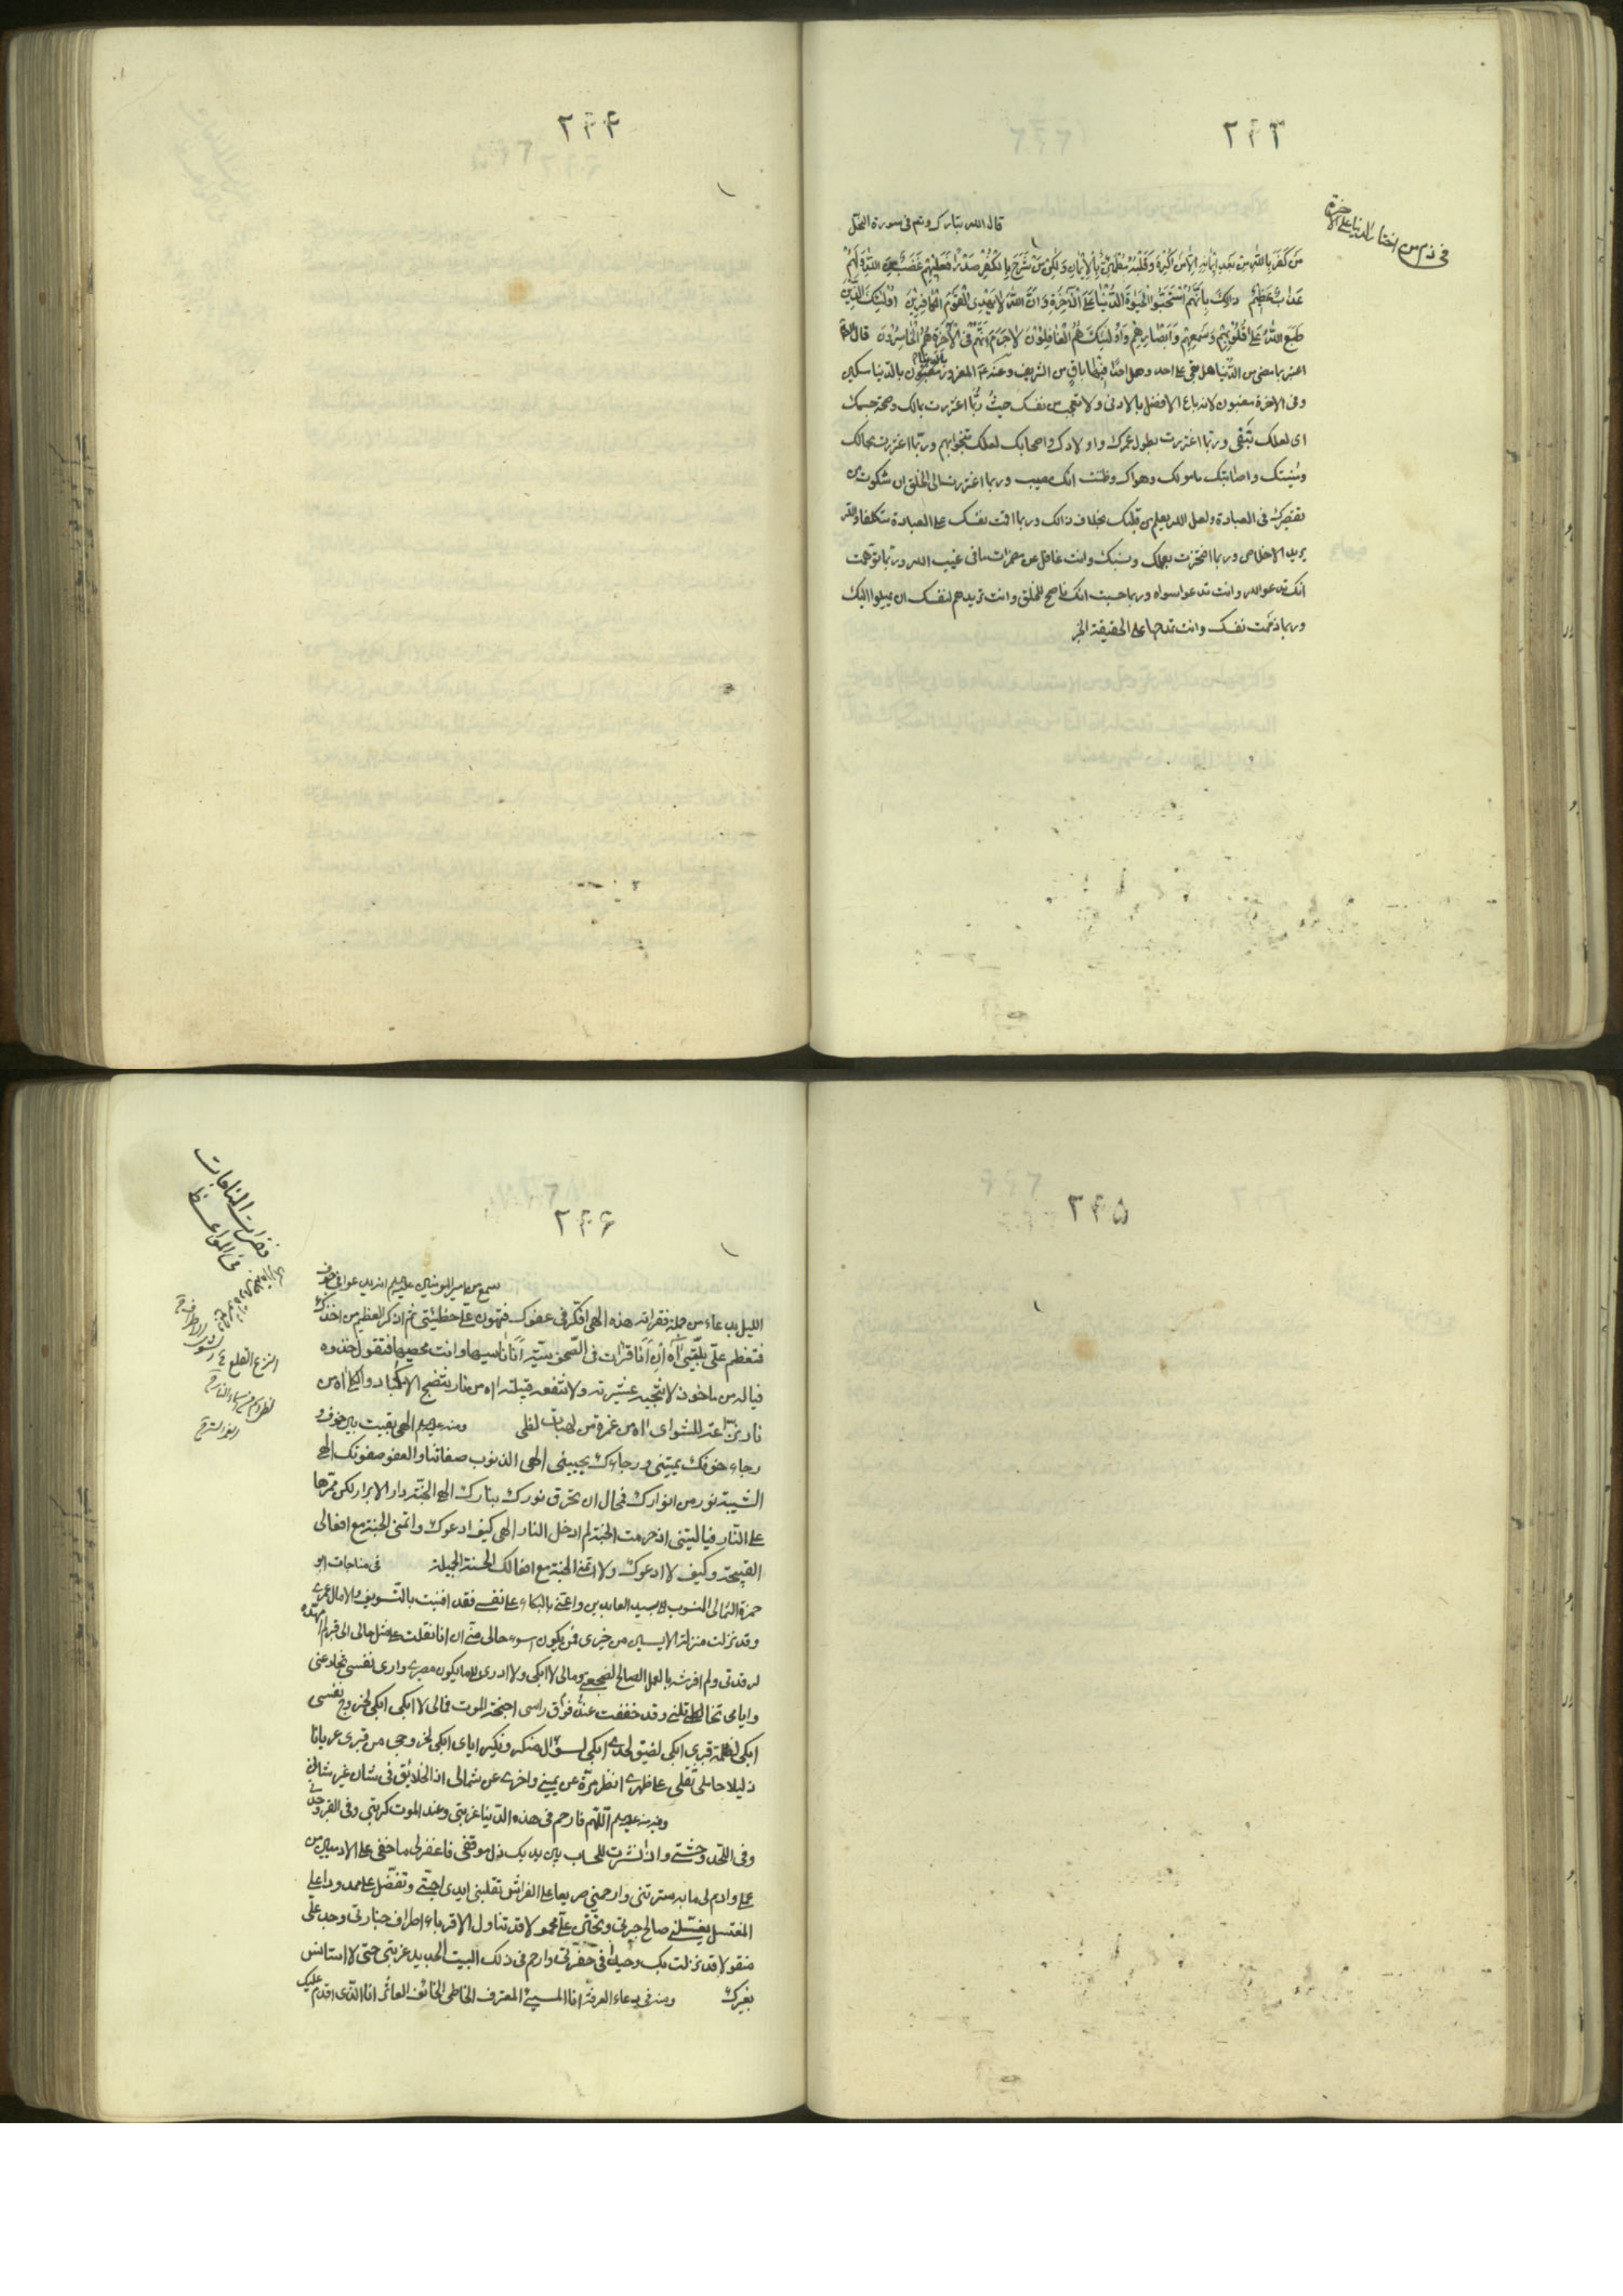 ٢٤٣
فى ذم من اختار الدنيا على الاخرة
قال الله تبارك وتعم فى سورة النحل
مَن كَفَرَ بِاللهِ مِن بَعدِ اِيمانِهِ اِلّا مَن اُكرِهَ وَقَلبُهُ مُطمَئِنٌّ بِالاِيمانِ وَلكِن مَن شَرَحَ بِالكُفرِ صَدراً فَعَلَيهِم غَضَبٌ مِنَ اللهِ وَلَهُم
عَذابٌ عَظِيمٌ ذلِكَ بِاَنَّهُمُ استَحَبُّوا الحَيوةَ الدُّنيا عَلَى الآخِرَةِ وَاَنَّ اللهَ لا يَهدِى القَومَ الكافِرِينَ اُولئِكَ الَّذِينَ
طَبَعَ اللهُ عَلى قُلُوبِهِم وَسَمعِهِم وَاَبصارِهِم وَاُولئِكَ هُمُ الغافِلُونَ لا جَرَمَ اَنَّهُم فِى الآخِرَةِ هُمُ الخاسِرُونَ قال
اعتبر بما مضى من الدنيا هل بقى على احد وهل احد فيها باق من الشريف و المغرور بالدنيا مسكين
وفى الاخرة مغبون لانه باع الافضل بالادنى ولا تعجب من نفسك حيث ربّما اغتررت بمالك وصحة جسمك
اى لعلك تَبقى وربّما اغتررت بطول عمرك واولادك واصحابك لعلك تنجوا بهم وربّما اغتررت بجمالك
ومنيتك واصابتك مامولك وهواك وظننت انك مصيب وربما اغتررت الى الخلق ان شكوت من
تقصيرك فى العبادة ولعل الله يعلم من قلبك بخلاف ذالك وربما اقمت نفسك على العبادة متكلفا والله
يريد الاخلاص وربما افتخرت بعملك ونسبك وانت غافل عن مضمرات ما فى غيب الله وربّما توهّمت
انك تدعو الله وانت تدعو سواه وربما حسبت انك ناصح للخلق وانت تريدهم لنفسك ان يميلوا اليك
وربما ذممت نفسك وانت تمدحها على الحقيقة الخبر
٢٤٤
٢٤٥
٢٤٦
فقرات المناجات
فى المواعظ
سمع من امير المومنين عليه السلم انه يدعو فى جوف
الليل بدعاء من جملة فقراته هذه الهى افكّر فى عفوك فتهون علىّ خطيئتى ثم اذكر العظيم من اخذك
فتعظم علىّ بليّتى آه اِن اَنَا قرات فى الصّحف سيّئة اَنَا ناسيها وانت محصيها فتقول خذوه
فياله من ماخوذ لا تنجيه عشيرته ولا تنفعه قبيلته اه من نار تنضج الاكباد والكلى اه من
نار نزّاعة للشوى اه من غمرة من لهبات لظى ومنه عليه السلم الهى بقيت بين خوف و
رجاء خوفك يميتنى ورجاءك يحيينى الهى الذنوب صفاتنا والعفو صفوتك الهى
الشيبة نور من انوارك فمحال ان تحرق نورك بنارك الهى الجنّة دار الابرار لكن ممرّها
على النّار فياليتنى اذ حرمت الجنة لم ادخل النار الهى كيف ادعوك واتمنى الجنة مع افعالى
القبيحة وكيف لا ادعوك ولا اتمنى الجنة مع افعالك الحسنة الجميلة فى مناجات ابو
حمزة الثمالى المنسوب الى سيد العابدين واعنّى بالبكاء على نفسى فقد افنيت بالتّسويف والامال عمرى
وقد نزلت منزلة الايسين من خيرى فمن يكون اسوء حالى منّى ان انا نقلت على مثل حالى الى قبر لم امهّده
لرقدتى ولم افرشه بالعمل الصالح لضجعتى ومالى لا ابكى ولا ادرى الى ما يكون مصيرى وارى نفسى تخادعنى
وايامى تخاتلنى وقد خفقت عند فوق راسى اجنحة الموت فمالى لا ابكى ابكى لخروج نفسى
ابكى لظلمة قبرى ابكى لضيق لحدى ابكى لسوال منكر ونكير اياى ابكى لخروجى من قبرى عريانا
ذليلا حاملا ثقلى على ظهرى انظر مرّة عن يمينى واخرى عن شمالى اذ الخلائق فى شان غير شانى
ومنه عليه السلم اللّهم فارحم فى هذه الدّنيا غربتى وعند الموت كربتى وفى القبر وحدتى
وفى اللّحد وحشتى واذا نشرت للحساب بين يديك ذل موقفى فاغفر لى ما خفى على الادميين من
عملى وادم لى ما به سترتنى وارحمنى صريعا على الفراش تقلبنى ايدى احبّتى وتفضّل على ممدودا على
المغتسل يغسّلنى صالح جيرتى وتحنّن علىّ محمولا قد تناول الاقرباء اطراف جنازتى وجد علىّ
منقولا قد نزلت بك وحيدا فى حفرتى وارحم فى ذلك البيت الجديد غربتى حتى لا استانس
بغيرك ومنه فى دعاء العرفة انا المسيئ المعترف الخاطى الخائف العاثر انا الذى اقدم عليك